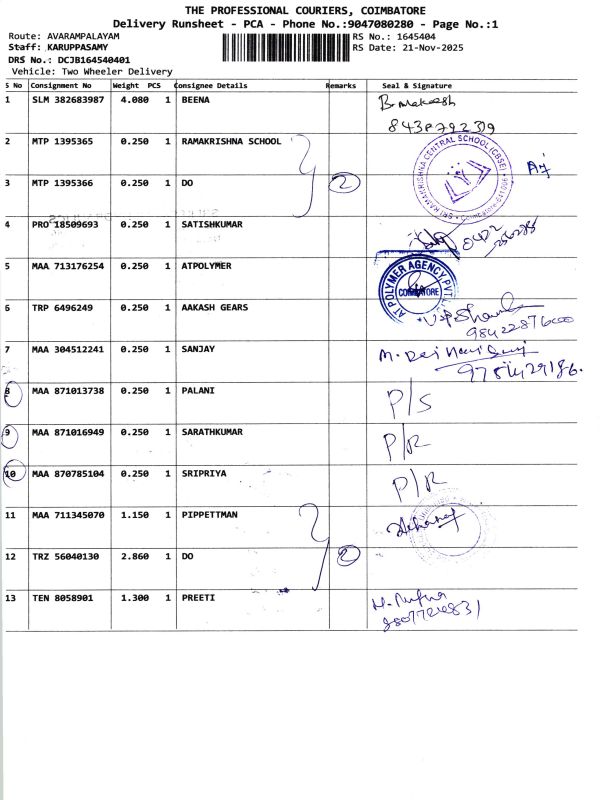 THE PROFESSIONAL COURIERS, COIMBATORE
Delivery Runsheet - PCA - Phone No.:9047080280 - Page No.:1
Route: AVARAMPALAYAM RS No.: 1645404
Staff: KARUPPASAMY RS Date: 21-Nov-2025
DRS No.: DCJB164540401
Vehicle: Two Wheeler Delivery
S No Consignment No Weight PCS Consignee Details Remarks Seal & Signature
1 SLM 382683987 4.080 1 BEENA
2 MTP 1395365 0.250 1 RAMAKRISHNA SCHOOL
3 MTP 1395366 0.250 1 DO 2
SRI RAMAKRISHNA CENTRAL SCHOOL (CBSE)
4 PRO 18509693 0.250 1 SATISHKUMAR
5 MAA 713176254 0.250 1 ATPOLYMER
AT POLYMER AGENCY PVT.
COIMBATORE
6 TRP 6496249 0.250 1 AAKASH GEARS
7 MAA 304512241 0.250 1 SANJAY
8 MAA 871013738 0.250 1 PALANI P/S
9 MAA 871016949 0.250 1 SARATHKUMAR P/R
10 MAA 870785104 0.250 1 SRIPRIYA P/R
11 MAA 711345070 1.150 1 PIPPETTMAN
12 TRZ 56040130 2.860 1 DO 2
13 TEN 8058901 1.300 1 PREETI